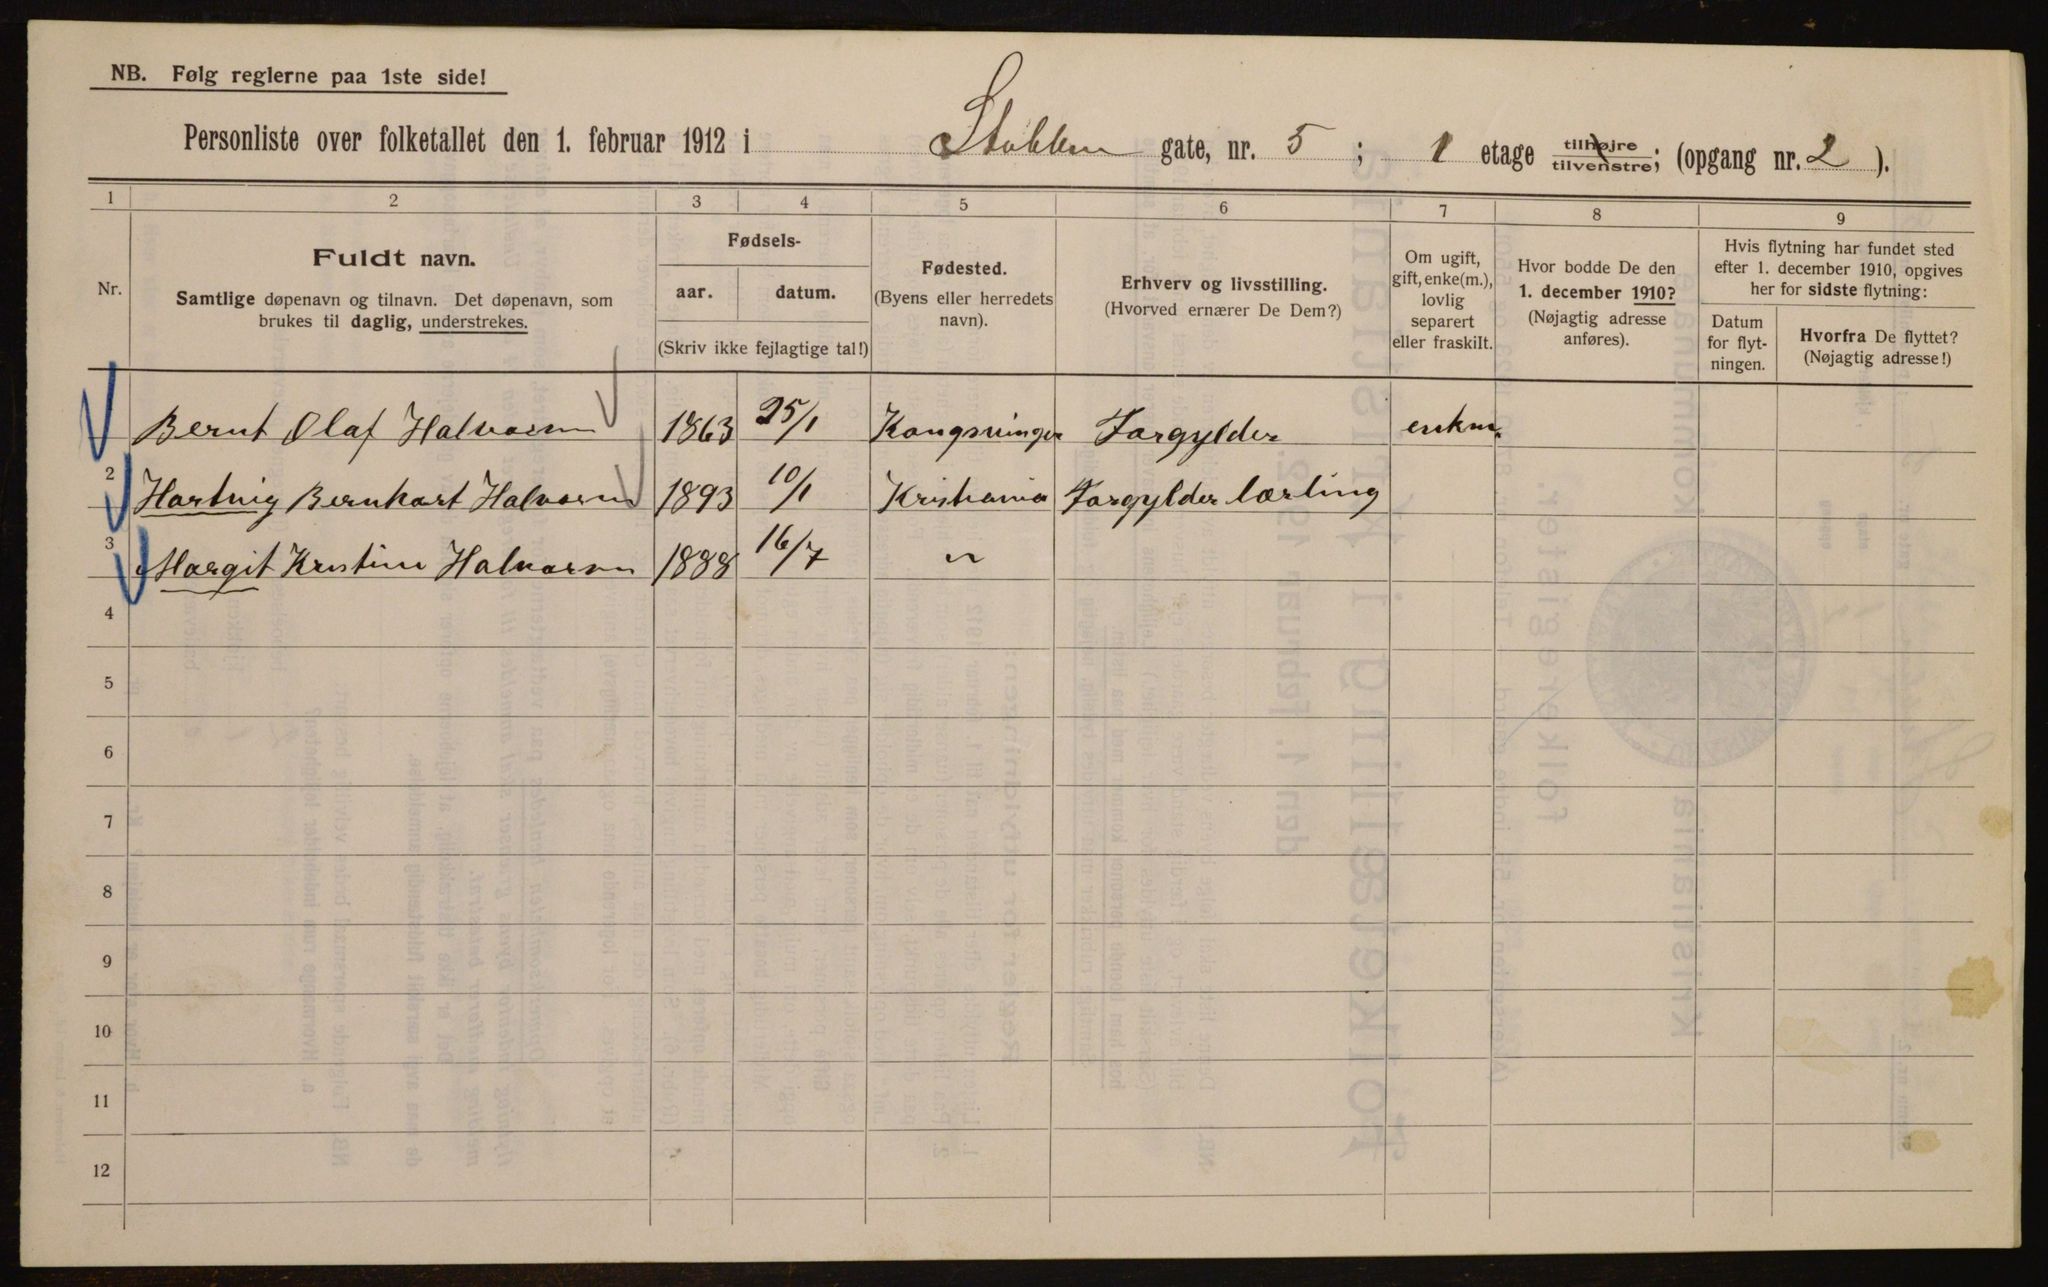 NB. Følg reglerne paa 1ste side!
Personliste over folketallet den 1. februar 1912 i Stokken gate, nr. 5 ; 1 etage tilhøjre tilvenstre; (opgang nr. 2 ).
1 2 3 4 5 6 7 8 9
Nr.
Fuldt navn.
Samtlige døpenavn og tilnavn. Det døpenavn, som
brukes til daglig, understrekes.
Fødsels-
aar. datum.
(Skriv ikke fejlagtige tal!)
Fødested.
(Byens eller herredets
navn).
Erhverv og livsstilling.
(Hvorved ernærer De Dem?)
Om ugift,
gift, enke(m.),
lovlig
separert
eller fraskilt.
Hvor bodde De den
1. december 1910?
(Nøjagtig adresse
anføres).
Hvis flytning har fundet sted
efter 1. december 1910, opgives
her for sidste flytning:
Datum
for flyt-
ningen.
Hvorfra De flyttet?
(Nøjagtig adresse!)
Bernt Olaf Halvorsen 1863 25/1 Kongsvinger Forgylder enkm.
2 Hartvig Bernhart Halvorsen 1893 10/1 Kristiania Forgylder lærling
3 Margit Kristine Halvorsen 1888 16/7 "
4
5
6
7
8
9
10
11
12